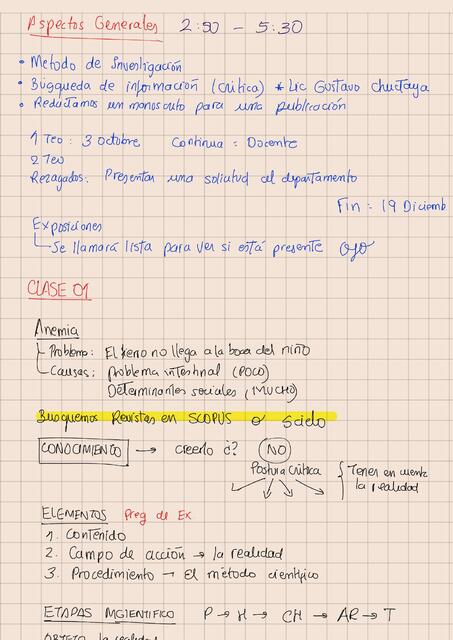 Aspectos Generales 2:50 - 5:30
• Metodo de Investigación
• Búsqueda de información (crítica) * Lic Gustavo Chuctaya
• Redactamos un manoscuto para una publicación
1 Teo: 3 octubre Continua = Docente
2 Teo
Rezagados: Presentar una solicitud al departamento
Fin = 19 Diciemb
Exposiciones
Se llamará lista para ver si está presente OJO
CLASE 01
Anemia
Problema: El fierro no llega a la boca del niño
Causas: Problema intestinal (POCO)
Determinantes sociales (MUCHO)
Busquemos Revistas en SCOPUS o Scielo
CONOCIMIENTO → creerlo ¿? NO
Postura Crítica { Tener en cuenta
la realidad
ELEMENTOS Preg de Ex
1. Contenido
2. Campo de acción → la realidad
3. Procedimiento → El método científico
ETAPAS MCIENTIFICO P → H → CH → AR → T
OBJETO la realidad